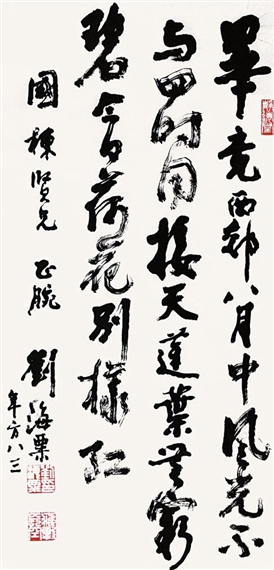 畢竟西郊八月中風光不
与四时同接天蓮葉无窮
碧今日荷花别樣红
國棟賢兄 正腕 劉海粟
年方八三